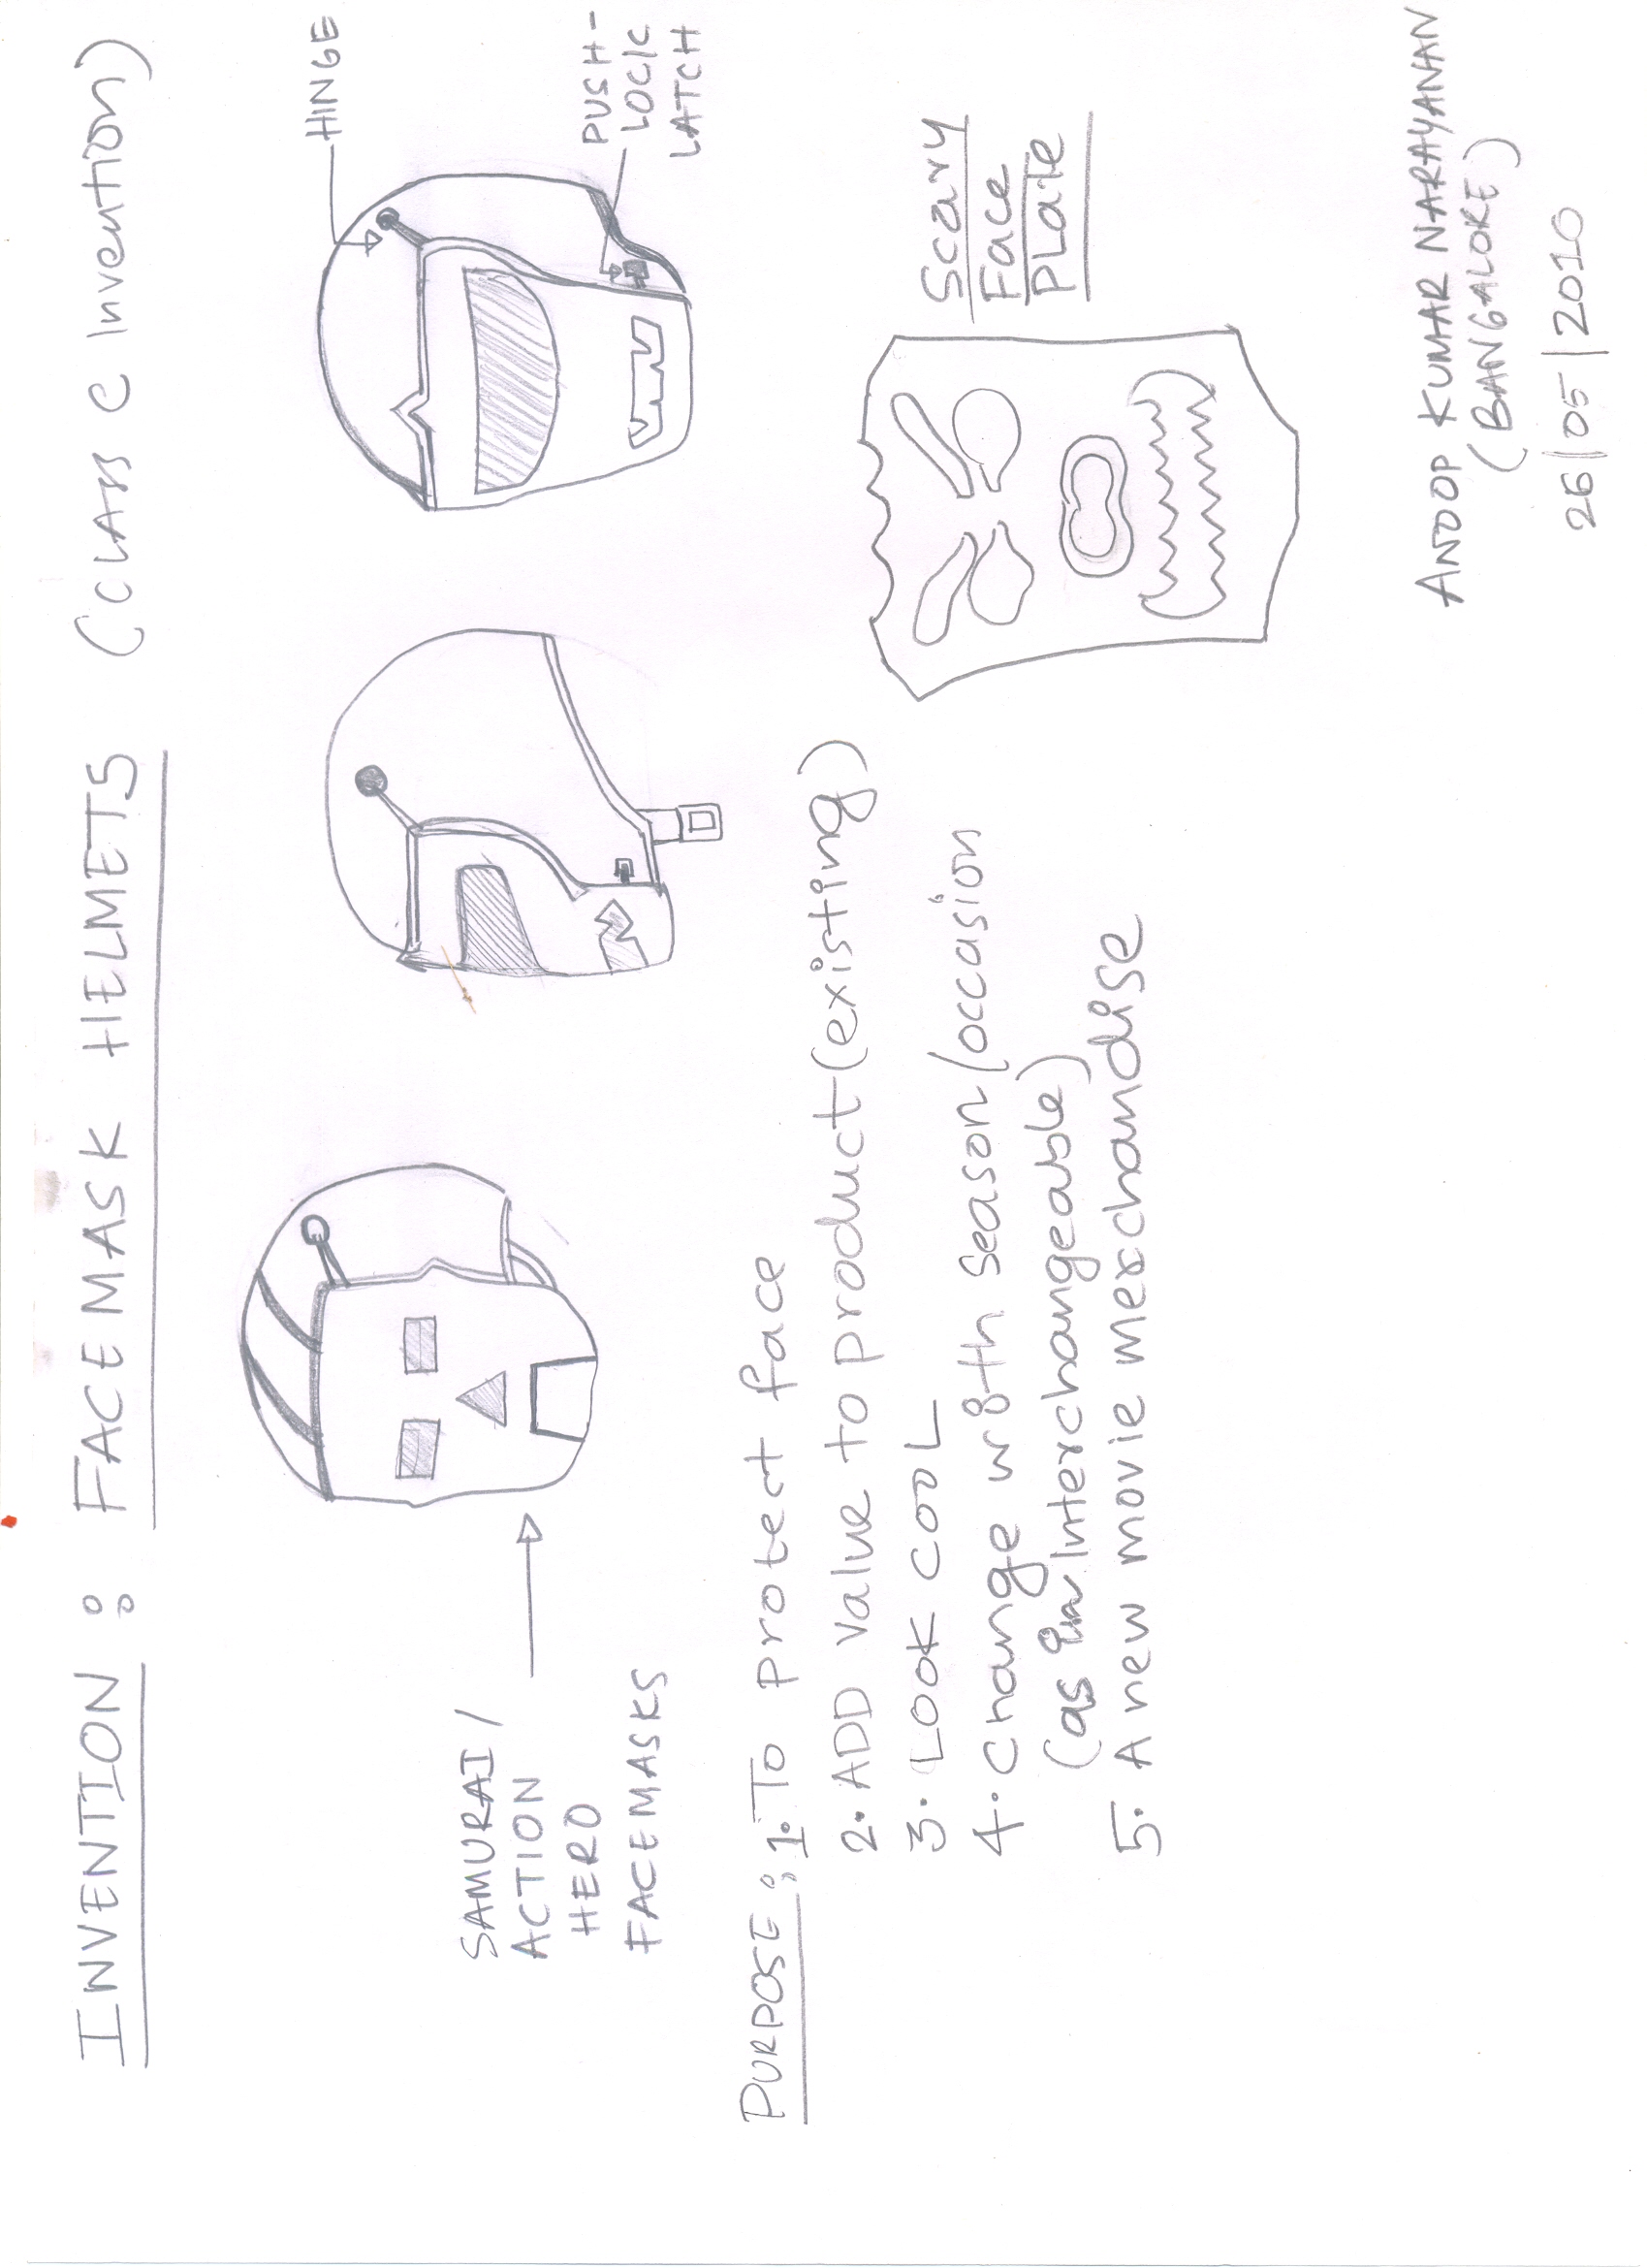 INVENTION : FACEMASK HELMETS (CLASS C Invention)
HINGE
PUSH-
LOCK
LATCH
SAMURAI /
ACTION
HERO
FACEMASKS
Scary
Face
PLate
PURPOSE : 1. To protect face
2. ADD value to product (existing)
3. LOOK COOL
4. change with season/occasion
(as in interchangeable)
5. A new movie merchandise
ANOOP KUMAR NARAYANAN
(BANGALORE)
26/05/2010